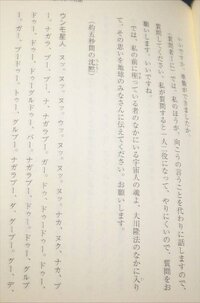 いいですか。準備ができましたか。
(質問者に)では、私のほうが、向こうの言うことを代わりに話しますので、
質問してください。私が質問すると一人二役になって、やりにくいので、質問をお
願いします。いいですね。
では、私の前に座っている者のなかにいる宇宙人の魂よ、大川隆法のなかに入り
まして、その思いを地球のみなさんに伝えてください。お願いします。
(約五秒間の沈黙)
ウンモ星人 ヌッ、ヌッ、ヌッ、ウッ、ヌッ、ヌッ、ヌッ、ナガッ、ヌク、ナガ、ブ
ー、ナガラ、ブー、ブー、ブー、ナガラブー、ドゥー、ドゥー、ドゥー、グルブ
ー、ドゥー、ドゥーグルドゥー、バー、ナガラブーダ、ドゥー、ドゥードゥードゥ
ー、ガー、ブードゥー、トゥー、グルブー、ナガラブーダ、グーブー、グー、デ、